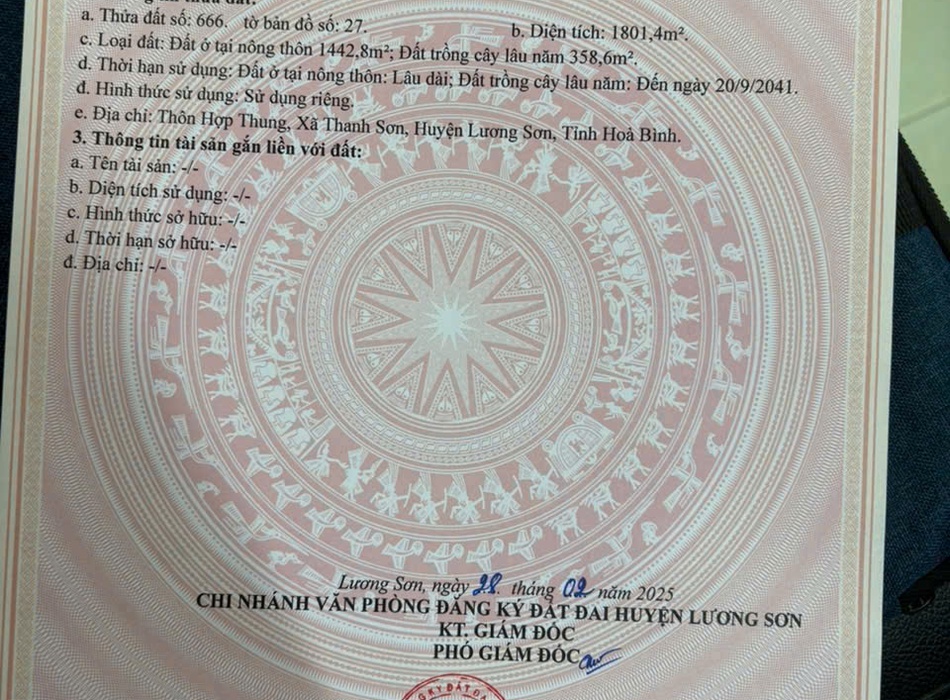 a. Thửa đất số: 666. tờ bản đồ số: 27. b. Diện tích: 1801,4m².
c. Loại đất: Đất ở tại nông thôn 1442,8m²; Đất trồng cây lâu năm 358,6m².
d. Thời hạn sử dụng: Đất ở tại nông thôn: Lâu dài; Đất trồng cây lâu năm: Đến ngày 20/9/2041.
đ. Hình thức sử dụng: Sử dụng riêng.
e. Địa chỉ: Thôn Hợp Thung, Xã Thanh Sơn, Huyện Lương Sơn, Tỉnh Hoà Bình.
3. Thông tin tài sản gắn liền với đất:
a. Tên tài sản: -/-
b. Diện tích sử dụng: -/-
c. Hình thức sở hữu: -/-
d. Thời hạn sở hữu: -/-
đ. Địa chỉ: -/-
Lương Sơn, ngày 28. tháng 02 năm 2025
CHI NHÁNH VĂN PHÒNG ĐĂNG KÝ ĐẤT ĐAI HUYỆN LƯƠNG SƠN
KT. GIÁM ĐỐC
PHÓ GIÁM ĐỐC
KÝ ĐẤT ĐA